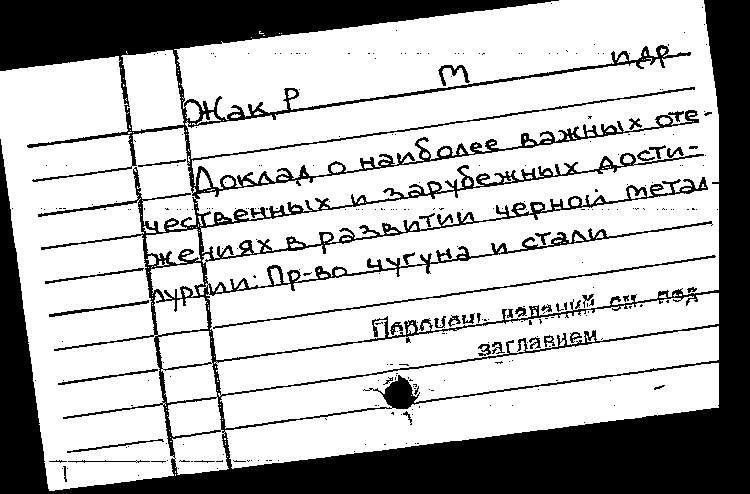 Жак, Р М и др
Доклад о наиболее важных оте-
чественных и зарубежных дости-
жениях в развитии черной метал-
лургии: Пр-во чугуна и стали
Перечень изданий см. под
заглавием